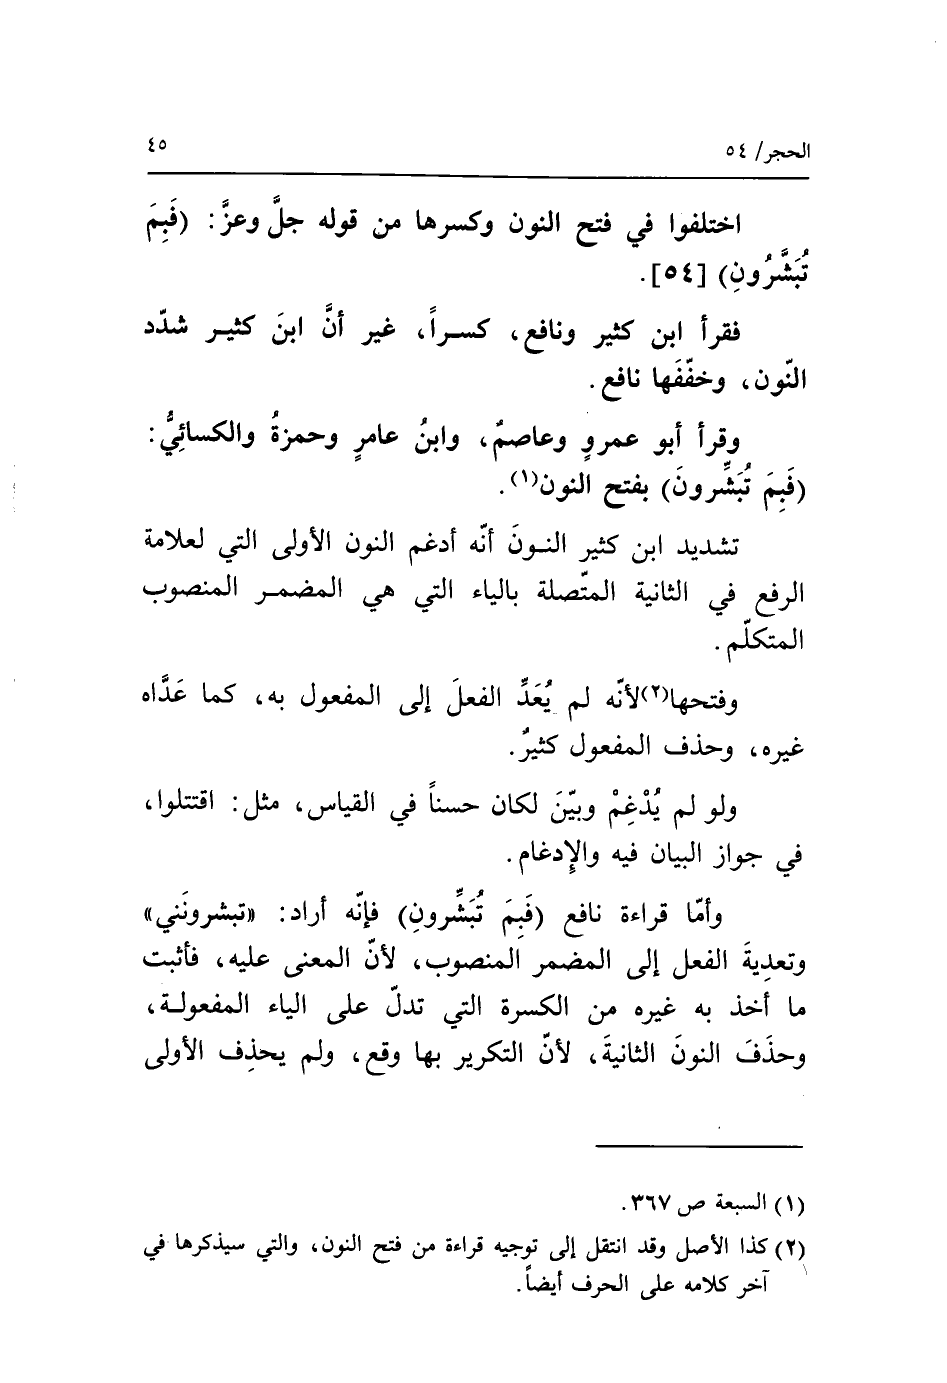 الحجر/ ٥٤
٤٥
اختلفوا في فتح النون وكسرها من قوله جلَّ وعزَّ: (فَبِمَ
تُبَشَّرُونِ) [٥٤].
فقرأ ابن كثير ونافع، كسراً، غير أنَّ ابنَ كثير شدّد
النّون، وخفّفَها نافع.
وقرأ أبو عمروٍ وعاصمٌ، وابنُ عامرٍ وحمزةُ والكسائِيُّ:
(فَبِمَ تُبَشِّرونَ) بفتح النون(١).
تشديد ابن كثير النونَ أنّه أدغم النون الأولى التي لعلامة
الرفع في الثانية المتّصلة بالياء التي هي المضمر المنصوب
المتكلّم.
وفتحها(٢)لأنّه لم يُعَدِّ الفعلَ إلى المفعول به، كما عَدَّاه
غيره، وحذف المفعول كثيرٌ.
ولو لم يُدْغِمْ وبيّنَ لكان حسناً في القياس، مثل: اقتتلوا،
في جواز البيان فيه والإِدغام.
وأمّا قراءة نافع (فَبِمَ تُبَشِّرونِ) فإنّه أراد: «تبشرونَني»
وتعدِيةَ الفعل إلى المضمر المنصوب، لأنّ المعنى عليه، فأثبت
ما أخذ به غيره من الكسرة التي تدلّ على الياء المفعولة،
وحذَفَ النونَ الثانيةَ، لأنّ التكرير بها وقع، ولم يحذِف الأولى
(١) السبعة ص ٣٦٧.
(٢) كذا الأصل وقد انتقل إلى توجيه قراءة من فتح النون، والتي سيذكرها في
آخر كلامه على الحرف أيضاً.